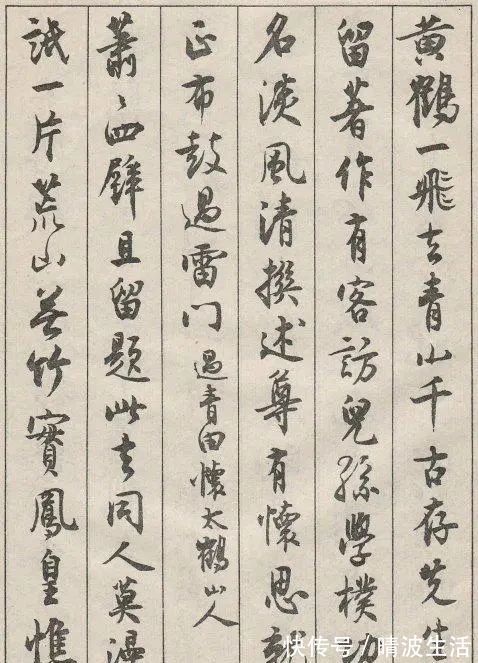 黄鶴一飛去青山千古存先生
留著作有客訪兒孫學樸功
名淡風清撰述尊有懷思就
正布鼓過雷门 過青田懷太鶴山人
蕭〻四壁且留題此去同人莫漫
詆一片荒山無竹實鳳皇憔
快传号/晴波生活